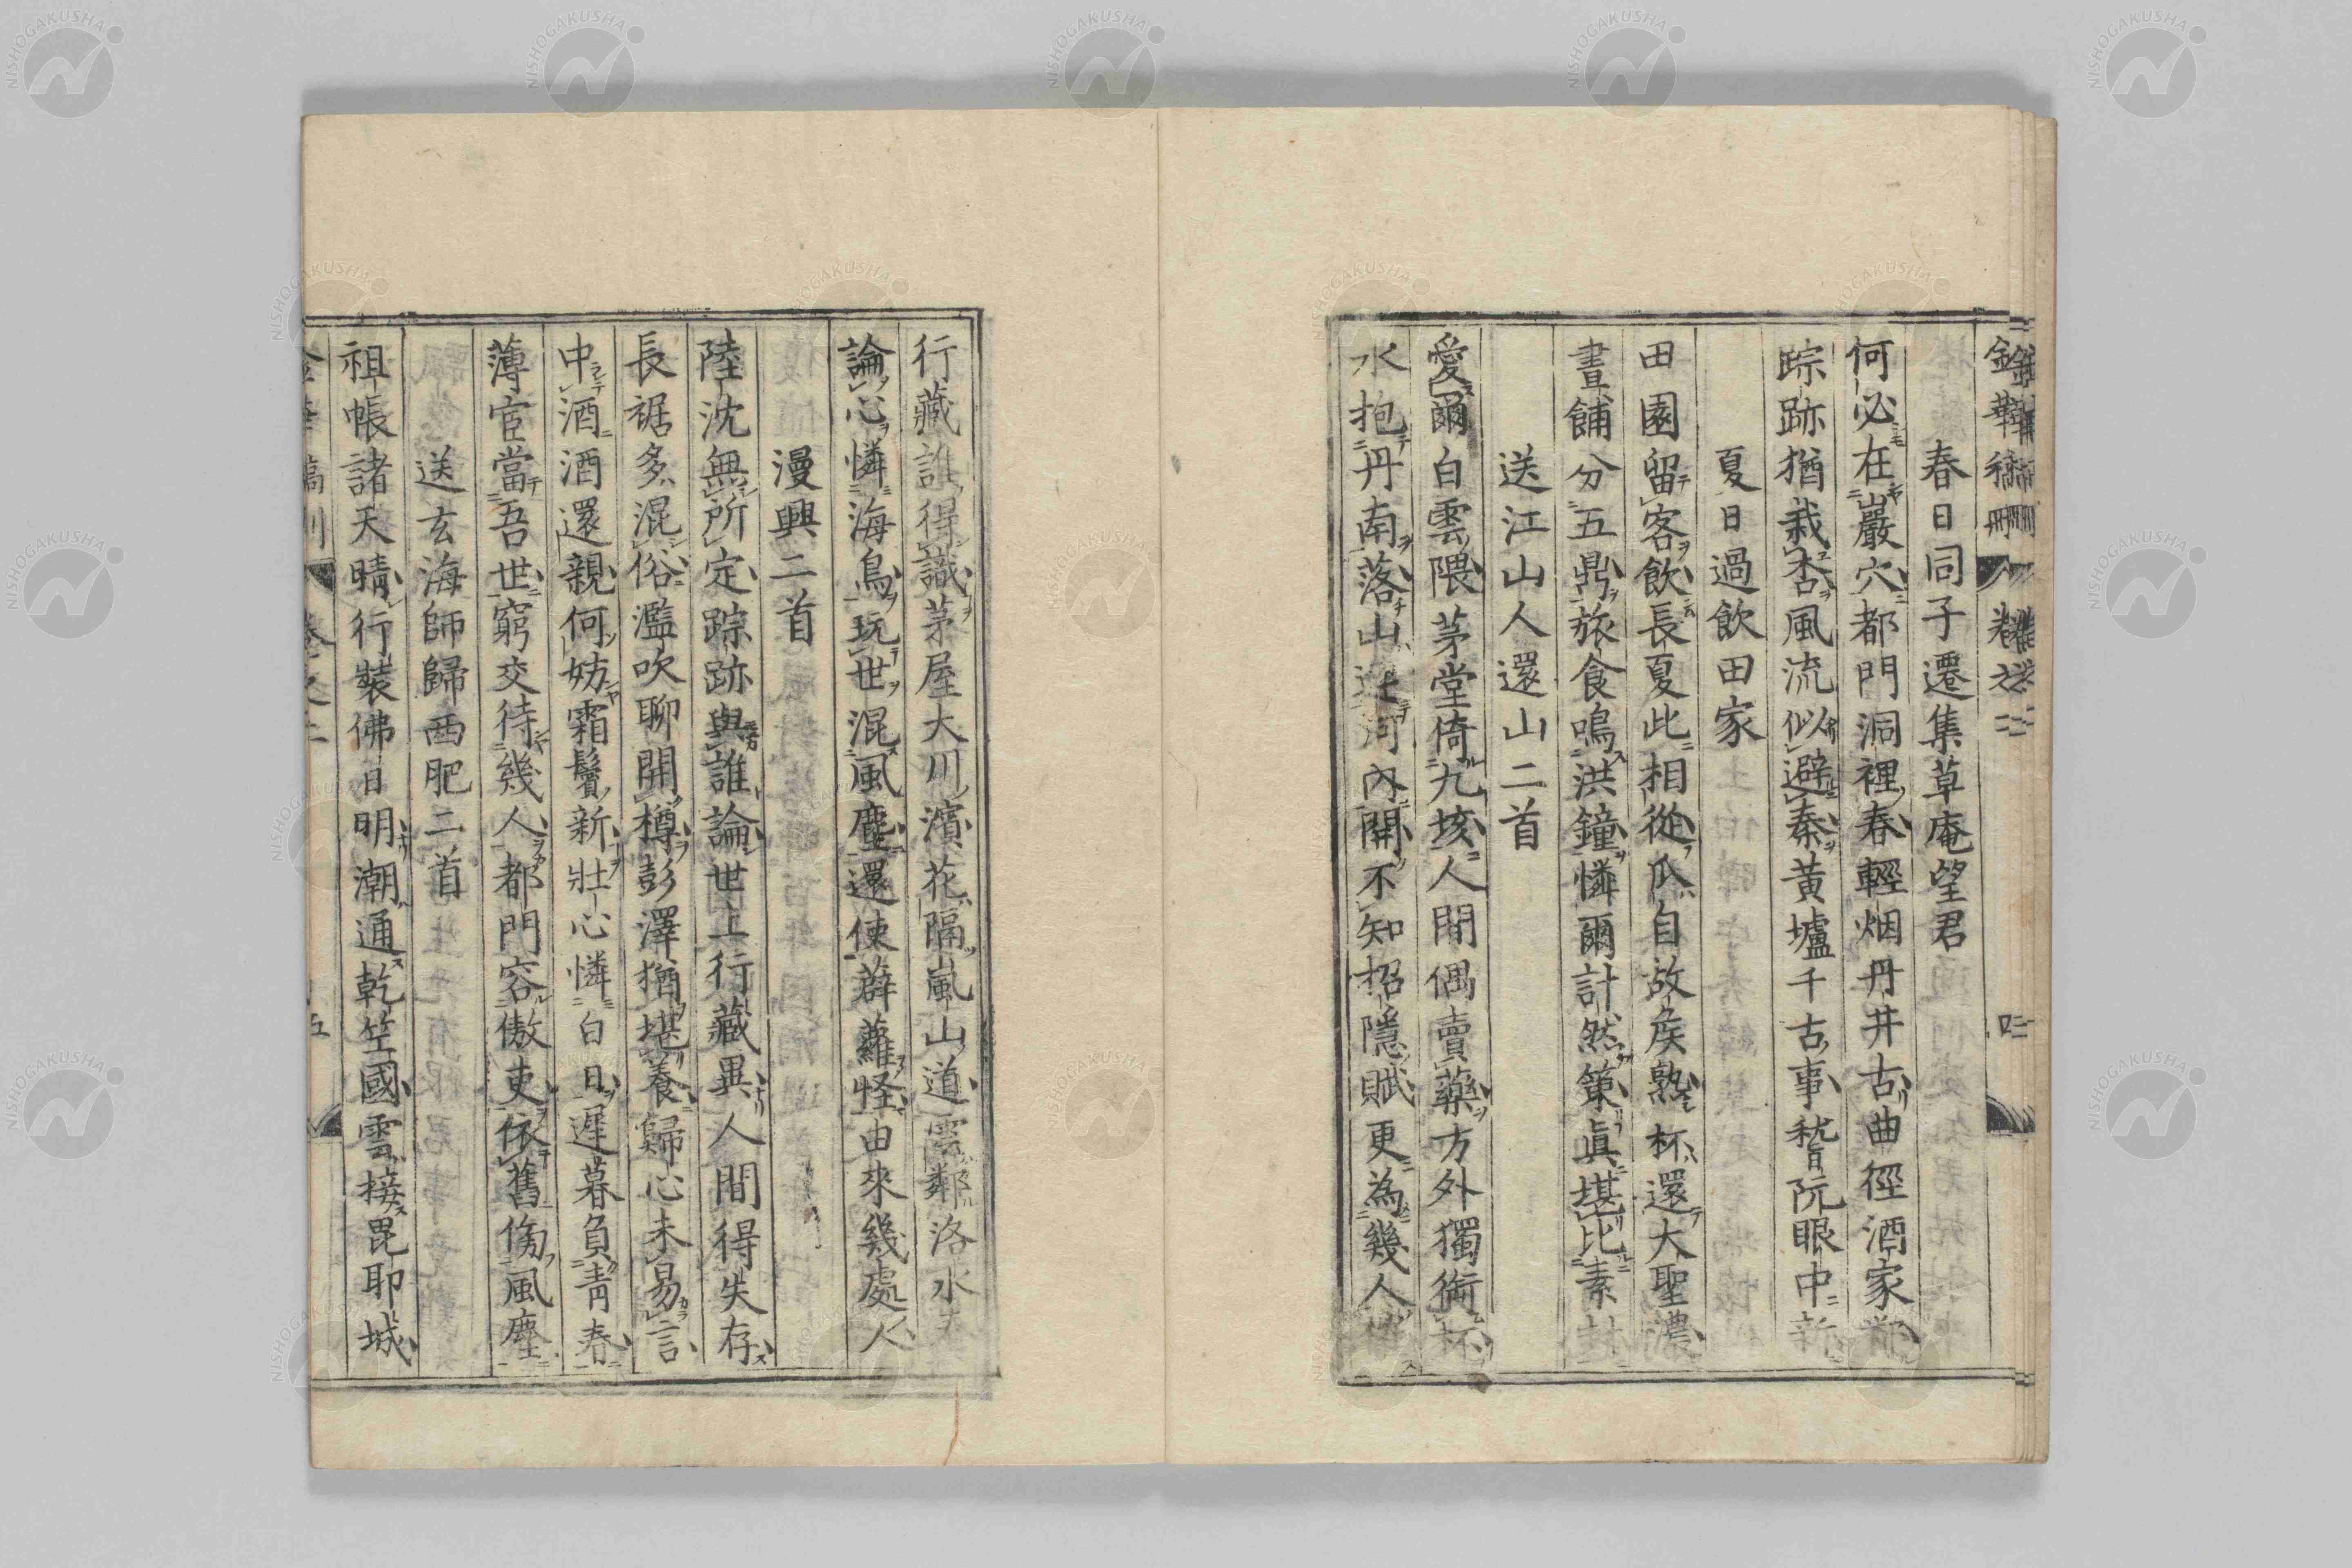 春日同子遷集草庵望君
何必在巖穴都門洞裡春輕烟丹井古曲徑酒家
踪跡猶栽杏風流似避秦黃壚千古事嵇阮眼中新
夏日過飲田家
田園留客飲長夏此相從瓜自故矦熟杯還大聖濃
晝餔分五鼎旅食鳴洪鐘憐爾計然策眞堪比素封
送江山人還山二首
愛爾白雲隈茅堂倚九垓人間偶賣藥方外獨銜杯
水抱丹南落山河內開不知招隱賦更為幾人
行藏誰得識茅屋大川濱花隔嵐山道雲鄰洛水
論心憐海鳥玩世混風塵還使薜蘿怪由來幾處人
漫興二首
陸沈無所定踪跡與誰論世上行藏異人間得失存
長裾多混俗濫吹聊開樽彭澤猶堪養歸心未易言
中酒酒還親何妨霜鬢新壯心憐白日遲暮負青春
薄宦當吾世窮交待幾人都門容傲吏依舊傷風塵
送玄海師歸西肥二首
祖帳諸天晴行裝佛日明潮通乾竺國雲接毘耶城